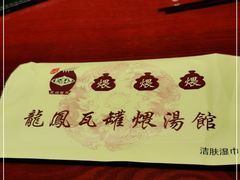 煨 煨 煨
龍鳳瓦罐煨湯館
洁肤湿巾